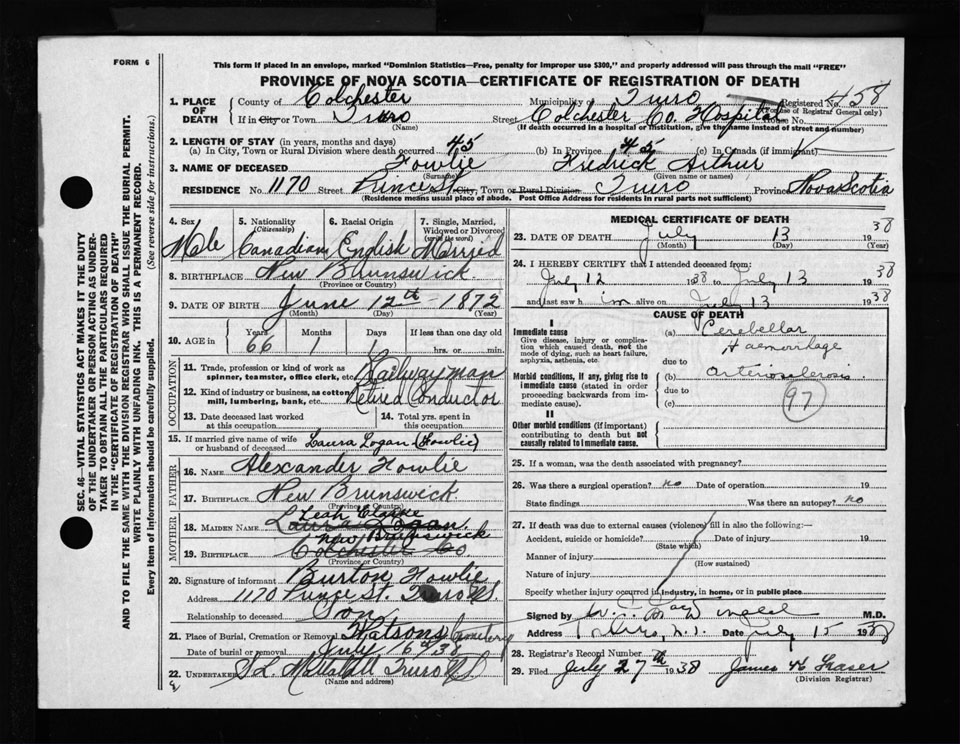 FORM 6
This form if placed in an envelope, marked "Dominion Statistics—Free, penalty for improper use $300," and properly addressed will pass through the mail "FREE"
PROVINCE OF NOVA SCOTIA—CERTIFICATE OF REGISTRATION OF DEATH
SEC. 46—VITAL STATISTICS ACT MAKES IT THE DUTY
OF THE UNDERTAKER OR PERSON ACTING AS UNDER-
TAKER TO OBTAIN ALL THE PARTICULARS REQUIRED
IN THE "CERTIFICATE OF REGISTRATION OF DEATH"
AND TO FILE THE SAME WITH THE DIVISION REGISTRAR WHO SHALL ISSUE THE BURIAL PERMIT.
WRITE PLAINLY WITH UNFADING INK. THIS IS A PERMANENT RECORD.
Every item of Information should be carefully supplied. (See reverse side for instructions.)
1. PLACE OF DEATH
County of Colchester Municipality of Truro Registered No. 458
(For use of Registrar General only)
If in City or Town Truro Street Colchester Co. Hospital House No.
(Name) (If death occurred in a hospital or institution, give the name instead of street and number)
2. LENGTH OF STAY (in years, months and days)
(a) In City, Town or Rural Division where death occurred 45 (b) In Province 45 (c) In Canada (if immigrant)
3. NAME OF DECEASED Fowlie Fredrick Arthur
(Surname) (Given name or names)
RESIDENCE No. 1170 Street Prince St City, Town or Rural Division Truro Province Nova Scotia
(Residence means usual place of abode. Post Office Address for residents in rural parts not sufficient)
4. Sex 5. Nationality 6. Racial Origin 7. Single, Married,
(Citizenship) Widowed or Divorced
(write the word)
Male Canadian English Married
8. BIRTHPLACE New Brunswick
(Province or Country)
9. DATE OF BIRTH June 12th 1872
(Month) (Day) (Year)
10. AGE in Years Months Days If less than one day old
66 1 1 hrs. or min.
OCCUPATION
11. Trade, profession or kind of work as
spinner, teamster, office clerk, etc. Railwayman
12. Kind of industry or business, as cotton
mill, lumbering, bank, etc. Retired Conductor
13. Date deceased last worked
at this occupation
14. Total yrs. spent in
this occupation
15. If married give name of wife
or husband of deceased Laura Logan (Fowlie)
FATHER
16. NAME Alexander Fowlie
17. BIRTHPLACE New Brunswick
(Province or Country)
MOTHER
Leah Clarke
18. MAIDEN NAME Laura Logan
New Brunswick
19. BIRTHPLACE Colchester Co
(Province or Country)
20. Signature of informant Burton Fowlie
Address 1170 Prince St. Truro N.S.
Relationship to deceased Son
21. Place of Burial, Cremation or Removal Watsons Cemetery
Date of burial or removal July 16 1938
22. UNDERTAKER Mattatall Truro N.S.
(Name and address)
MEDICAL CERTIFICATE OF DEATH
23. DATE OF DEATH July 13 1938
(Month) (Day) (Year)
24. I HEREBY CERTIFY that I attended deceased from:
July 12 1938 to July 13 1938
and last saw him alive on July 13 1938
CAUSE OF DEATH
I
Immediate cause
Give disease, injury or complica-
tion which caused death, not the
mode of dying, such as heart failure,
asphyxia, asthenia, etc.
(a) Cerebellar
Haemorrhage
due to
Morbid conditions, if any, giving rise to
immediate cause (stated in order
proceeding backwards from im-
mediate cause).
(b) arteriosclerosis
due to
(c)
97
II
Other morbid conditions (if important)
contributing to death but not
causally related to immediate cause.
25. If a woman, was the death associated with pregnancy?
26. Was there a surgical operation? no Date of operation 19
State findings Was there an autopsy? no
27. If death was due to external causes (violence) fill in also the following:—
Accident, suicide or homicide? Date of injury 19
(State which)
Manner of injury
(How sustained)
Nature of injury
Specify whether injury occurred in industry, in home, or in public place
Signed by M.D.
Address Truro, N.S. Date July 15 1938
28. Registrar's Record Number
29. Filed July 27th 1938 James H Fraser
(Division Registrar)